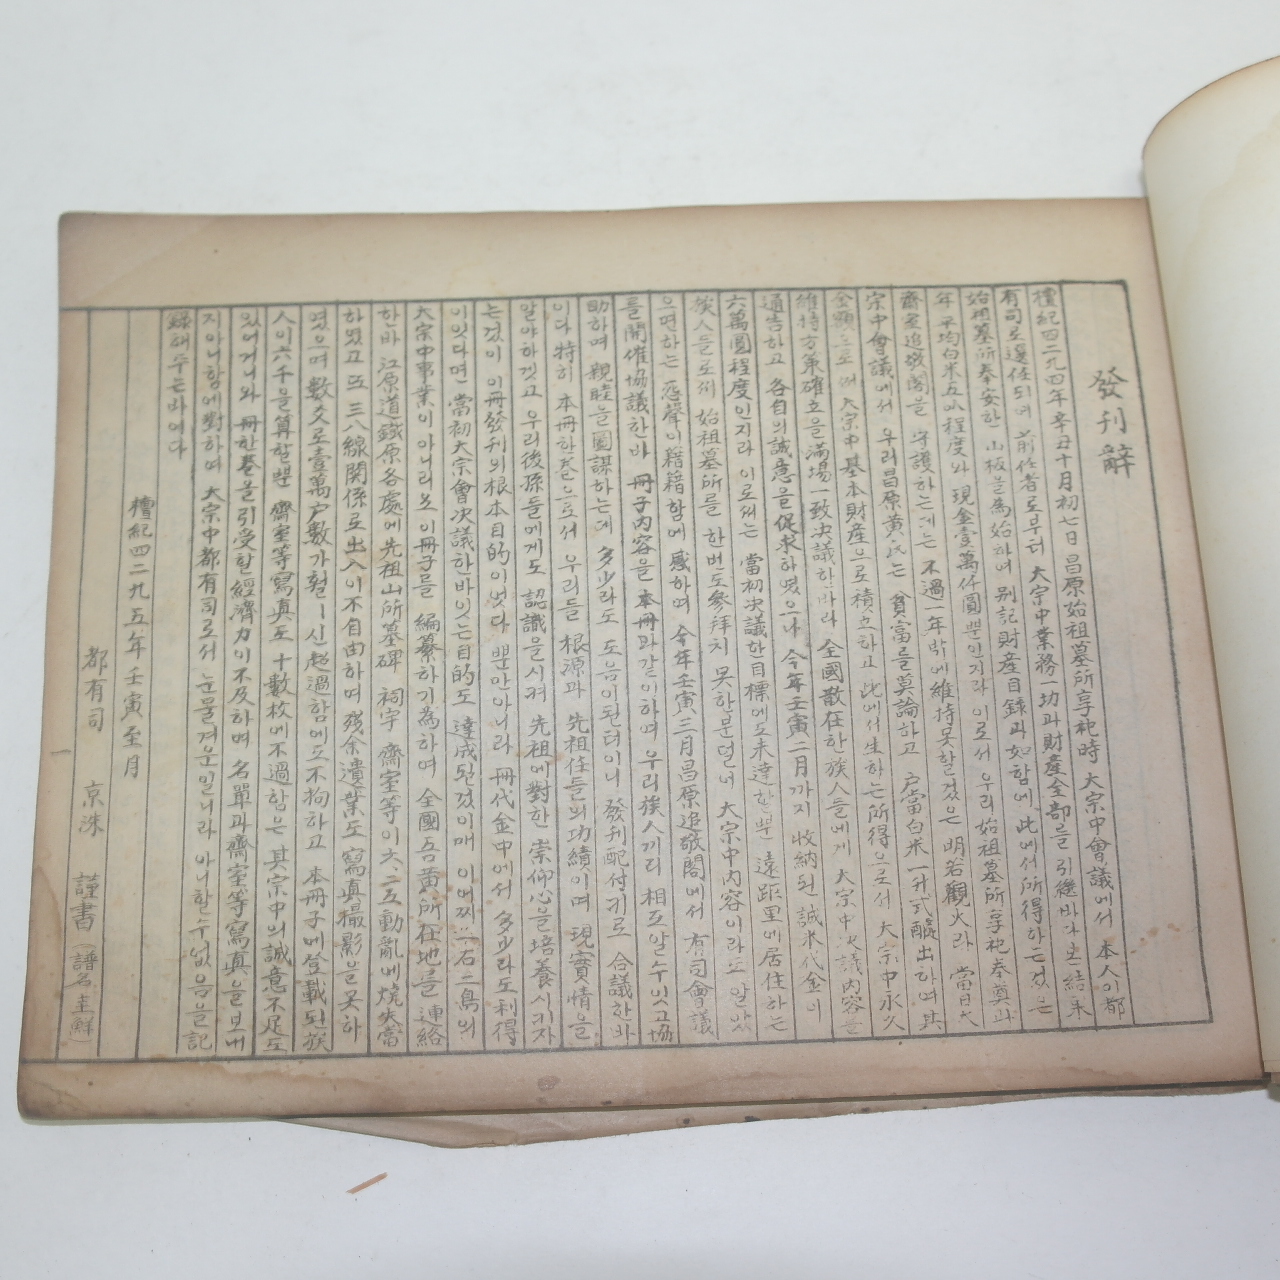 發刊辭
檀紀四二九四年辛丑十月初七日 昌原始祖墓所享祀時 大宗中會議에서 本人이 都
有司로 選任되여 前任者로부터 大宗中業務一切과 財産全部를 引繼바다 본 結果
始祖墓所奉安한 山板을 爲始하여 别記財産目錄과 如함에 此에서 所得하는것은
年平均白米五叺程度와 現金壹萬仟圓뿐인지라 이로서 우리 始祖墓所享祀奉奠과
齋室追敬閣을 守護하는데는 不過一年밖에 維持못할것은 明若觀火라 當日大
宗中會議에서 우리 昌原黃氏는 貧富를 莫論하고 戶當白米一升式醵出하여 其
金額으로써 大宗中基本財産으로 積立하고 此에서 生하는 所得으로서 大宗中永久
維持方策確立을 滿場一致決議한바라 全國散在한 族人들에게 大宗中決議內容을
通告하고 各自의 誠意을 促求하였으나 今年壬寅二月까지 收納된 誠米代金이
六萬圓程度인지라 이로써는 當初決議한 目標에도 未達한뿐 遠距里에 居住하는
族人들로써 始祖墓所를 한번도 參拜치 못한분덜너 大宗中內容이라도 알앗
으면하는 恐聲이 籍籍함에 感하여 今年壬寅三月 昌原追敬閣에서 有司會議
를 開催協議한바 冊子內容을 本冊과 같이하며 우리 族人끼리 相互알수잇고 協
助하며 親睦을 圖謀하는데 多少라도 도음이 된터이니 發刊配付키로 合議한바
이다 特히 本冊한卷으로서 우리들 根源과 先祖任들의 功績이며 現實情을
알아야하겟고 우리 後孫들에게도 認識을시켜 先祖에 對한 崇仰心을 培養시키자
는것이 이 冊發刊의 根本目的이엇다 뿐만아니라 冊代金中에서 多少라도 利得
이잇다면 當初大宗會決議한바잇는 目的도 達成될것이매 이어찌 一石二鳥의
大宗中事業이 아니리요 이 冊子를 編纂하기爲하여 全國吾黃所在地를 連絡
한바 江原道鐵原各處에 先祖山所墓碑 祠宇 齋室等이 六.二五動亂에 燒失當
하였고 또 三八線關係로 出入이 不自由하며 殘余遺業도 寫眞撮影을 못하
였으며 數爻로 壹萬戶數가 훨신 超過함에도 不拘하고 本冊子에 登載된 族
人이 六千을 算할뿐 齋室等寫眞도 十數枚에 不過함은 其宗中의 誠意不足도
있거니와 冊한卷을 引受할 經濟力이 不及하며 名單과 齋室等寫眞을 보내
지아니함에 對하여 大宗中都有司로서 눈물겨운일니라 아니할수없음을 記
錄해두는바여다
檀紀四二九五年壬寅至月
都有司 京洙 謹書(譜名 圭鮮)
一